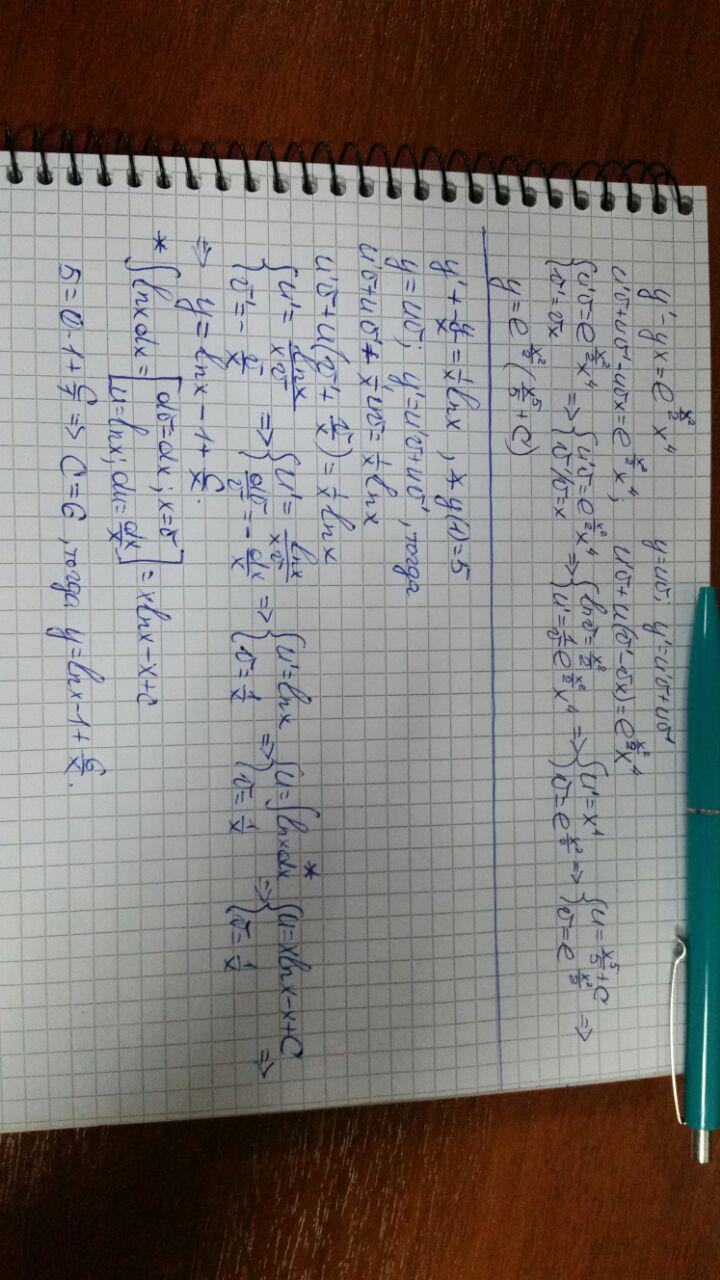 y' - yx = e^{x²/2} x⁴    y = uv; y' = u'v + uv'
u'v + uv' - uvx = e^{x²/2} x⁴;    u'v + u(v' - vx) = e^{x²/2} x⁴
{u'v = e^{x²/2} x⁴; v' = vx} => {u'v = e^{x²/2} x⁴; v'/v = x} => {ln v = x²/2; u' = 1/v e^{x²/2} x⁴} => {u' = x⁴; v = e^{x²/2}} => {u = x⁵/5 + C; v = e^{x²/2}} =>
y = e^{x²/2} (x⁵/5 + C)
y' + y/x = 1/x ln x, y(1) = 5
y = uv; y' = u'v + uv', тогда
u'v + uv' + 1/x uv = 1/x ln x
u'v + u(v' + v/x) = 1/x ln x
{u' = ln x/(xv); v' = -v/x} => {u' = ln x/(xv); dv/v = -dx/x} => {u' = ln x; v = 1/x} => {u = ∫ln x dx *; v = 1/x} => {u = x ln x - x + C; v = 1/x} =>
=> y = ln x - 1 + C/x.
* ∫ln x dx = [dv = dx; x = v; u = ln x; du = dx/x] = x ln x - x + C
5 = 0 - 1 + C/1 => C = 6, тогда y = ln x - 1 + 6/x.